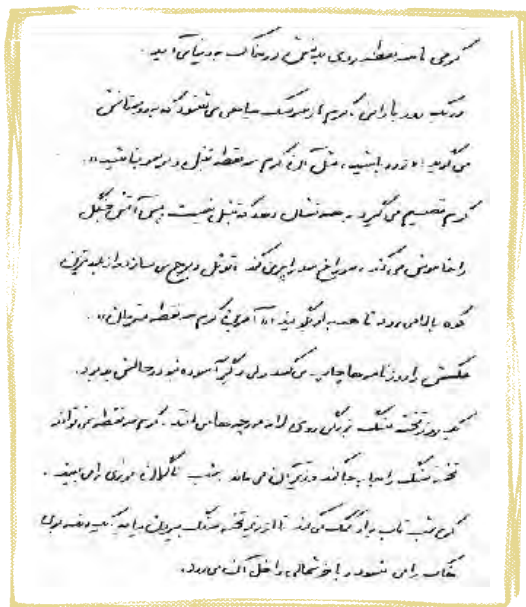 کرمی با سه نقطه روی بدنش در خاک به دنیا می آید.
در یک روز بارانی، کرم از سنگ می شنود که به دوستانش
می گوید: «زود باشید، مثل آن کرم سه نقطه تنبل و بی نباشید».
کرم تصمیم می گیرد به همه نشان دهد که تنبل نیست، پس آتش جنگل
را خاموش می کند، سوراخ سد را پر می کند، تونل و برج می سازد و از بلندترین
کوه بالا می رود تا همه به او بگویند: «آفرین! کرم سه نقطه قهرمان».
عکسش را روزنامه ها چاپ می کنند ولی دیگر آسوده نبود و حالش بد بود.
یک روز تخته سنگ بزرگی روی لانه مورچه ها می افتد. کرم سه نقطه نمی تواند
تخته سنگ را جا به جا کند و زیر آن می ماند. شب ناگهان نوری را می بیند.
کرم شب تاب به او کمک می کند تا از زیر تخته سنگ بیرون بیاید. یک دفعه بوی
خاک را می شنود و با خوشحالی داخل آن می رود.